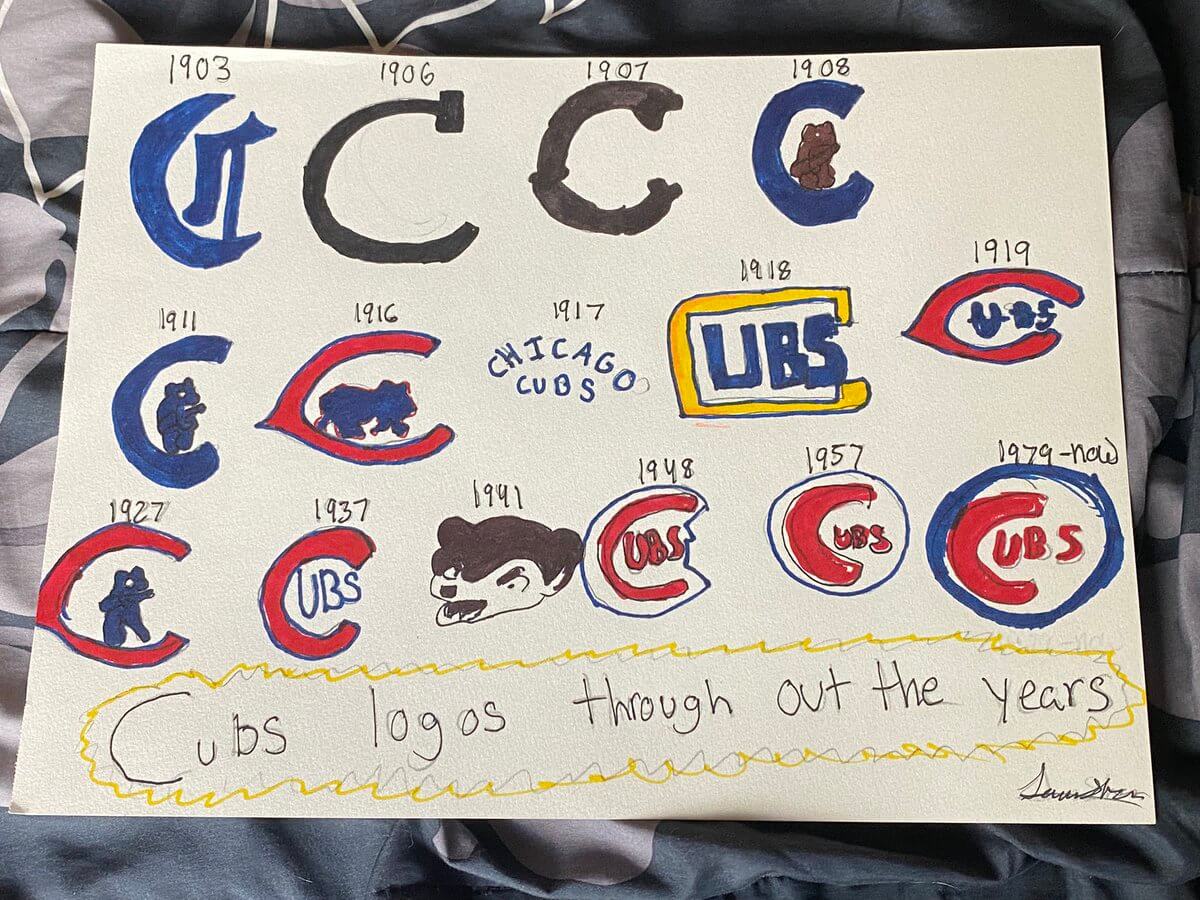 1903 1906 1907 1908
C
C
C
C
1911 1916 1917 1918 1919
C
C
CHICAGO
CUBS
CUBS
CUBS
1927 1937 1941 1948 1957 1979-now
C
CUBS
CUBS
CUBS
CUBS
Cubs logos through out the years